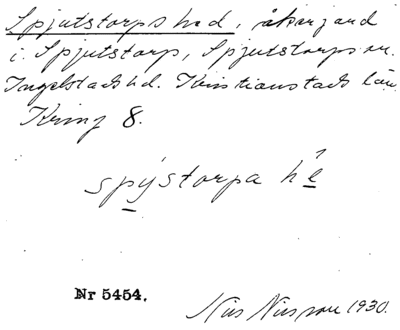 Spjutstorps hed, åkerjord
i Spjutstorp, Spjutstorps sn.
Ingelstads hd. Kristianstads län
Kring 8.
spýstorpa hê
Nr 5454.
Nils Nilsson 1930.